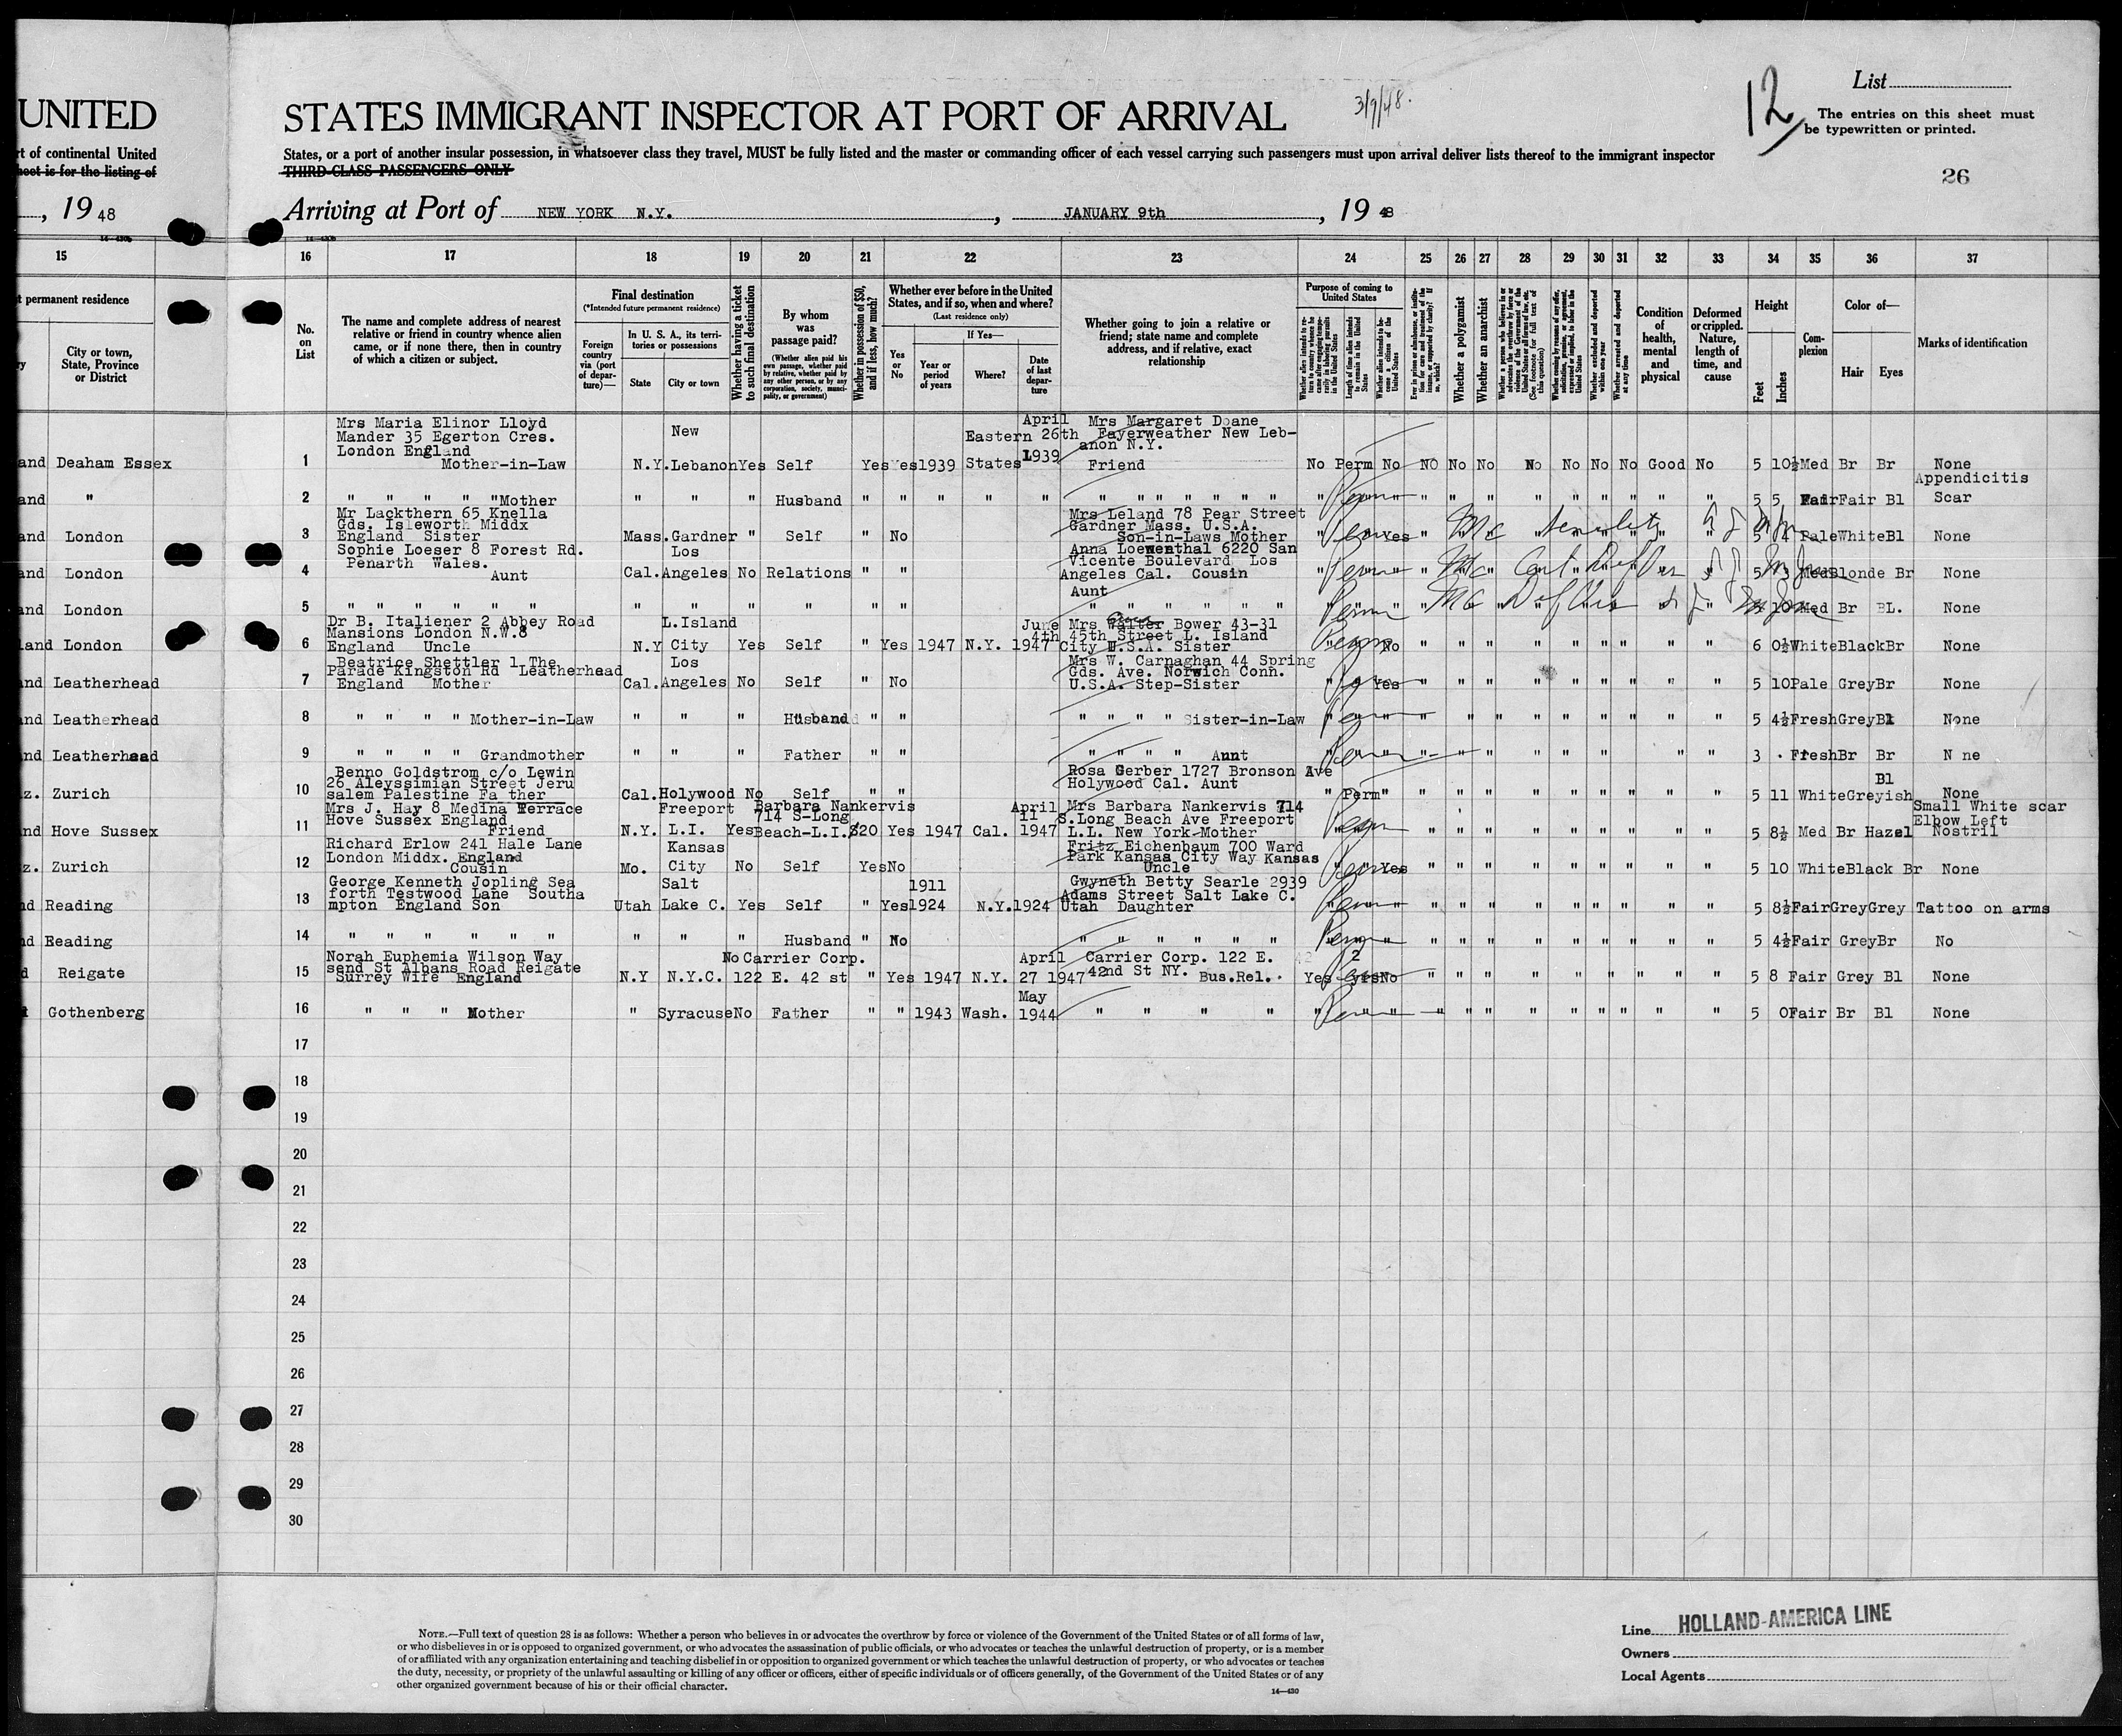 UNITED
rt of continental United
eet is for the listing of
, 19 48
STATES IMMIGRANT INSPECTOR AT PORT OF ARRIVAL
3/9/48.
12
List
The entries on this sheet must
be typewritten or printed.
States, or a port of another insular possession, in whatsoever class they travel, MUST be fully listed and the master or commanding officer of each vessel carrying such passengers must upon arrival deliver lists thereof to the immigrant inspector
THIRD-CLASS PASSENGERS ONLY
26
Arriving at Port of NEW YORK N.Y. , JANUARY 9th , 19 48
15 16 17 18 19 20 21 22 23 24 25 26 27 28 29 30 31 32 33 34 35 36 37
t permanent residence
City or town, State, Province or District
No. on List
The name and complete address of nearest relative or friend in country whence alien came, or if none there, then in country of which a citizen or subject.
Final destination
(*Intended future permanent residence)
Foreign country via (port of departure)—
In U. S. A., its territories or possessions
State
City or town
Whether having a ticket to such final destination
By whom was passage paid?
(Whether alien paid his own passage, whether paid by relative, whether paid by any other person, or by any corporation, society, municipality, or government)
Whether in possession of $50, and if less, how much?
Whether ever before in the United States, and if so, when and where?
(Last residence only)
Yes or No
If Yes—
Year or period of years
Where?
Date of last departure
Whether going to join a relative or friend; state name and complete address, and if relative, exact relationship
Purpose of coming to United States
Length of time alien intends to remain in the United States
Whether alien intends to become a citizen of the United States
Whether a polygamist
Whether an anarchist
(See footnote for full text of this question)
Whether excluded and deported within one year
Whether arrested and deported at any time
Condition of health, mental and physical
Deformed or crippled. Nature, length of time, and cause
Height
Feet
Inches
Complexion
Color of—
Hair
Eyes
Marks of identification
and Deaham Essex 1 Mrs Maria Elinor Lloyd
Mander 35 Egerton Cres.
London England
Mother-in-Law N.Y. New Lebanon Yes Self Yes Yes 1939 Eastern States April 26th 1939 Mrs Margaret Doane
Fayerweather New Leb-
anon N.Y.
Friend No Perm No NO No No No No No No Good No 5 10½ Med Br Br None
and " 2 " " " " "Mother " " " Husband " " " " " " " " " " " " " Perm " " " " " " " " " " " 5 5 Fair Fair Bl Appendicitis
Scar
and London 3 Mr Lackthern 65 Knella
Gds. Isleworth Middx
England Sister Mass. Gardner " Self " No Mrs Leland 78 Pear Street
Gardner Mass. U.S.A.
Son-in-Laws Mother " Perm Yes " " " " " " " " " 5 4 Pale White Bl None
and London 4 Sophie Loeser 8 Forest Rd.
Penarth Wales.
Aunt Cal. Los Angeles No Relations " " Anna Loewenthal 6220 San
Vicente Boulevard Los
Angeles Cal. Cousin " Perm " " 5 3 Med Blonde Br None
and London 5 " " " " " " " " " " " " Aunt
" " " " " " Perm " 10 Med Br BL. None
and London 6 Dr B. Italiener 2 Abbey Road
Mansions London N.W.8
England Uncle N.Y L.Island City Yes Self " Yes 1947 N.Y. June 4th 1947 Mrs Walter Bower 43-31
45th Street L. Island
City U.S.A. Sister " Perm No " " " " " " " " " 6 0½ White Black Br None
and Leatherhead 7 Beatrice Shettler 1 The
Parade Kingston Rd Leatherhead
England Mother Cal. Los Angeles No Self " No Mrs W. Carnaghan 44 Spring
Gds. Ave. Norwich Conn.
U.S.A. Step-Sister " " Yes " " " " " " " " " 5 10 Pale Grey Br None
and Leatherhead 8 " " " " Mother-in-Law " " " Husband " " " " " " Sister-in-Law " Perm " " " " " " " " " " 5 4½ Fresh Grey Bl None
and Leatherhead 9 " " " " Grandmother " " " Father " " " " " " Aunt " Perm " " " " " " " " " 3 Fresh Br Br N ne
z. Zurich 10 Benno Goldstrom c/o Lewin
26 Aleyssimian Street Jeru
salem Palestine Fa ther Cal. Holywood No Self " " Rosa Gerber 1727 Bronson Ave
Holywood Cal. Aunt " Perm " " " " " " " " " " 5 11 White Greyish Bl None
nd Hove Sussex 11 Mrs J. Hay 8 Medina Terrace
Hove Sussex England
Friend N.Y. Freeport L.I. Yes Barbara Nankervis
714 S-Long
Beach-L.I. $20 Yes 1947 Cal. April 11 1947 Mrs Barbara Nankervis 714
S.Long Beach Ave Freeport
L.L. New York-Mother " Perm " " " " " " " " " " 5 8½ Med Br Hazel Small White scar
Elbow Left
Nostril
z. Zurich 12 Richard Erlow 241 Hale Lane
London Middx. England
Cousin Mo. Kansas City No Self Yes No Fritz Eichenbaum 700 Ward
Park Kansas City Way Kansas
Uncle " Perm Yes " " " " " " " " " 5 10 White Black Br None
nd Reading 13 George Kenneth Jopling Sea
forth Testwood Lane Southa
mpton England Son Utah Salt Lake C. Yes Self " Yes 1911
1924 N.Y. 1924 Gwyneth Betty Searle 2939
Adams Street Salt Lake C.
Utah Daughter " Perm " " " " " " " " " " 5 8½ Fair Grey Grey Tattoo on arms
nd Reading 14 " " " " " " " " " Husband " No " " " " " " " Perm " " " " " " " " " " 5 4½ Fair Grey Br No
d Reigate 15 Norah Euphemia Wilson Way
send St Albans Road Reigate
Surrey Wife England N.Y N.Y.C. No Carrier Corp.
122 E. 42 st " Yes 1947 N.Y. April 27 1947 Carrier Corp. 122 E.
42nd St NY. Bus.Rel. Yes 2 yrs No " " " " " " " " " 5 8 Fair Grey Bl None
Gothenberg 16 " " " Mother " Syracuse No Father " " 1943 Wash. May 1944 " " " " " Perm " " " " " " " " " 5 0 Fair Br Bl None
17
18
19
20
21
22
23
24
25
26
27
28
29
30
NOTE.—Full text of question 28 is as follows: Whether a person who believes in or advocates the overthrow by force or violence of the Government of the United States or of all forms of law,
or who disbelieves in or is opposed to organized government, or who advocates the assassination of public officials, or who advocates or teaches the unlawful destruction of property, or is a member
of or affiliated with any organization entertaining and teaching disbelief in or opposition to organized government or which teaches the unlawful destruction of property, or who advocates or teaches
the duty, necessity, or propriety of the unlawful assaulting or killing of any officer or officers, either of specific individuals or of officers generally, of the Government of the United States or of any
other organized government because of his or their official character.
14—430
Line HOLLAND-AMERICA LINE
Owners
Local Agents